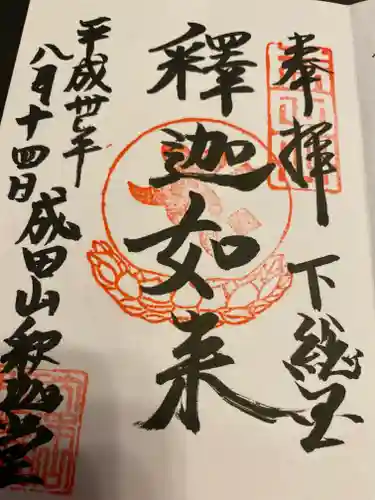 奉拝
下総国
釋迦如来
平成卅年
八月十四日
成田山釈迦堂